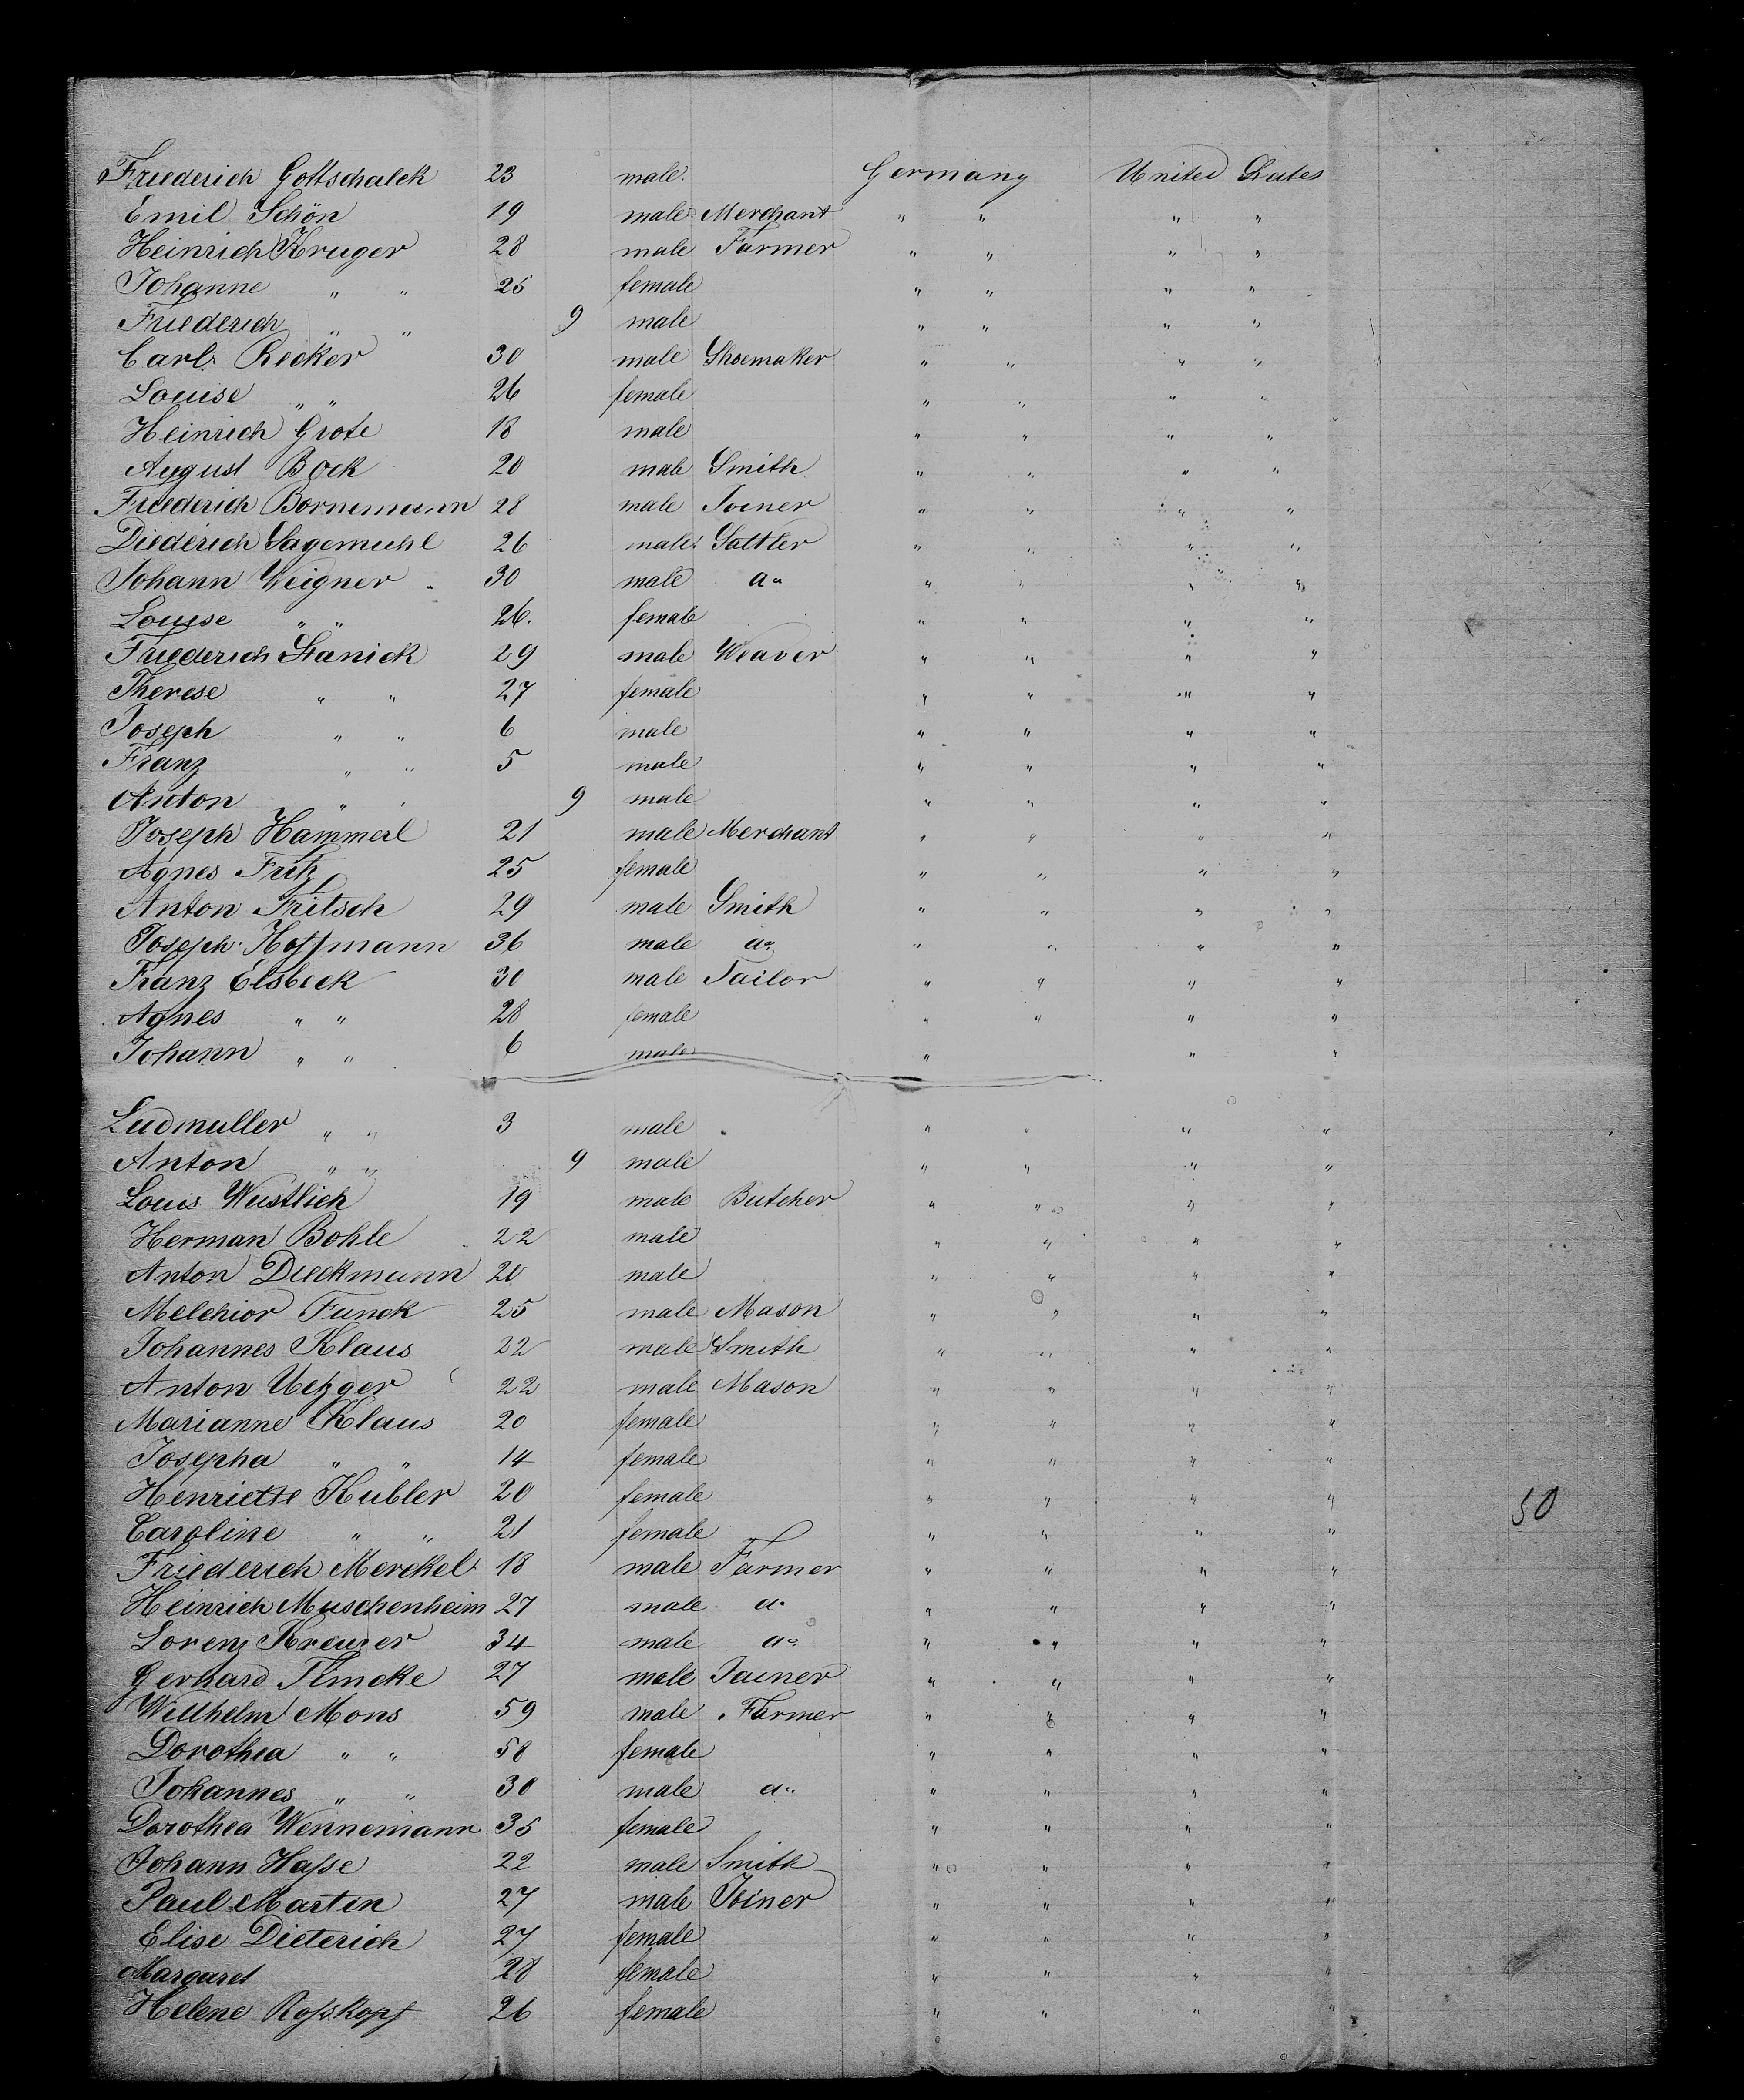 Friederich Gottschalck 23 male Germany United States
Emil Schön 19 male Merchant " " " "
Heinrich Kruger 28 male Farmer " " " "
Johanne " " 25 female " " " "
Friederich " " 9 male " " " "
Carl Recker 30 male Shoemaker " " " "
Louise " " 26 female " " " "
Heinrich Grote 18 male " " " "
August Bock 20 male Smith " " " "
Friederich Bornemann 28 male Joiner " " " "
Diederich Sagemuhl 26 male Sattler " " " "
Johann Weigner 30 male do " " " "
Louise " " 26. female " " " "
Friederich Stanick 29 male Weaver " " " "
Therese " " 27 female " " " "
Joseph " " 6 male " " " "
Franz " " 5 male " " " "
Anton " " 9 male " " " "
Joseph Hammerl 21 male Merchant " " " "
Agnes Fritz 25 female " " " "
Anton Fritsch 29 male Smith " " " "
Joseph Hoffmann 36 male do " " " "
Franz Elsbeck 30 male Tailor " " " "
Agnes " " 28 female " " " "
Johann " " 6 male " " "
Ludmuller " " 3 male " " " "
Anton " " 9 male " " " "
Louis Wustlich 19 male Butcher " " " "
Herman Bohle 22 male " " " "
Anton Dieckmann 20 male " " " "
Melchior Funck 25 male Mason " " " "
Johannes Klaus 22 male Smith " " " "
Anton Uetzger 22 male Mason " " " "
Marianne Klaus 20 female " " " "
Josepha " " 14 female " " " "
Henriette Kubler 20 female " " " " 50
Caroline " " 21 female " " " "
Friederich Merckel 18 male Farmer " " " "
Heinrich Muschenheim 27 male do " " " "
Lorenz Kreuzer 34 male do " " " "
Gerhard Timcke 27 male Joiner " " " "
Willhelm Mons 59 male Farmer " " " "
Dorothea " " 58 female " " " "
Johannes " " 30 male do " " " "
Dorothea Wennemann 35 female " " " "
Johann Hasse 22 male Smith " " " "
Paul Martin 27 male Joiner " " " "
Elise Dieterich 27 female " " " "
Margaret 28 female " " " "
Helene Rosskopf 26 female " " " "